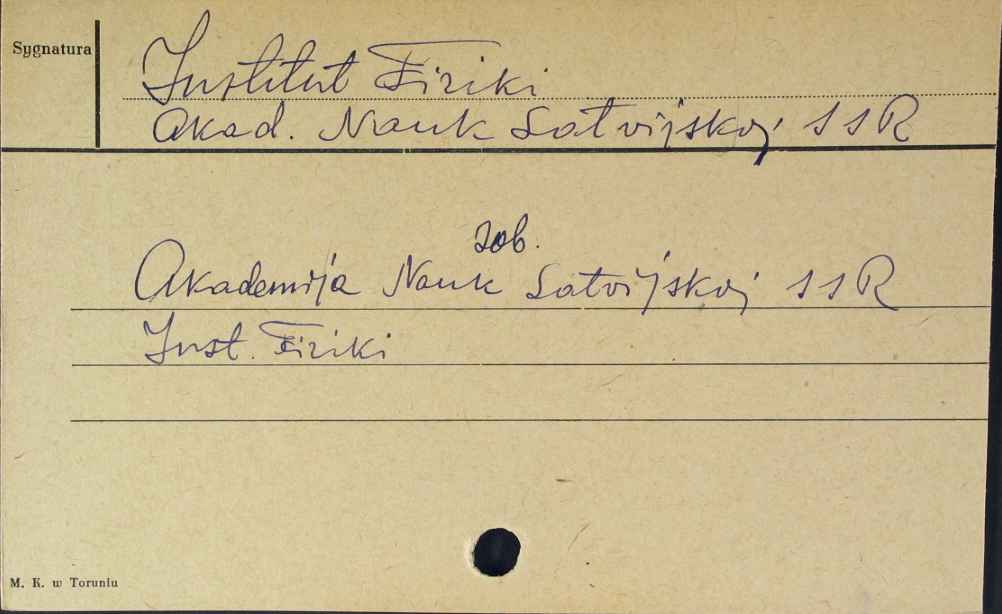 Sygnatura
Institut Fiziki
Akad. Nauk Latvijskoj SSR
zob.
Akademija Nauk Latvijskoj SSR
Inst. Fiziki
M. K. w Toruniu